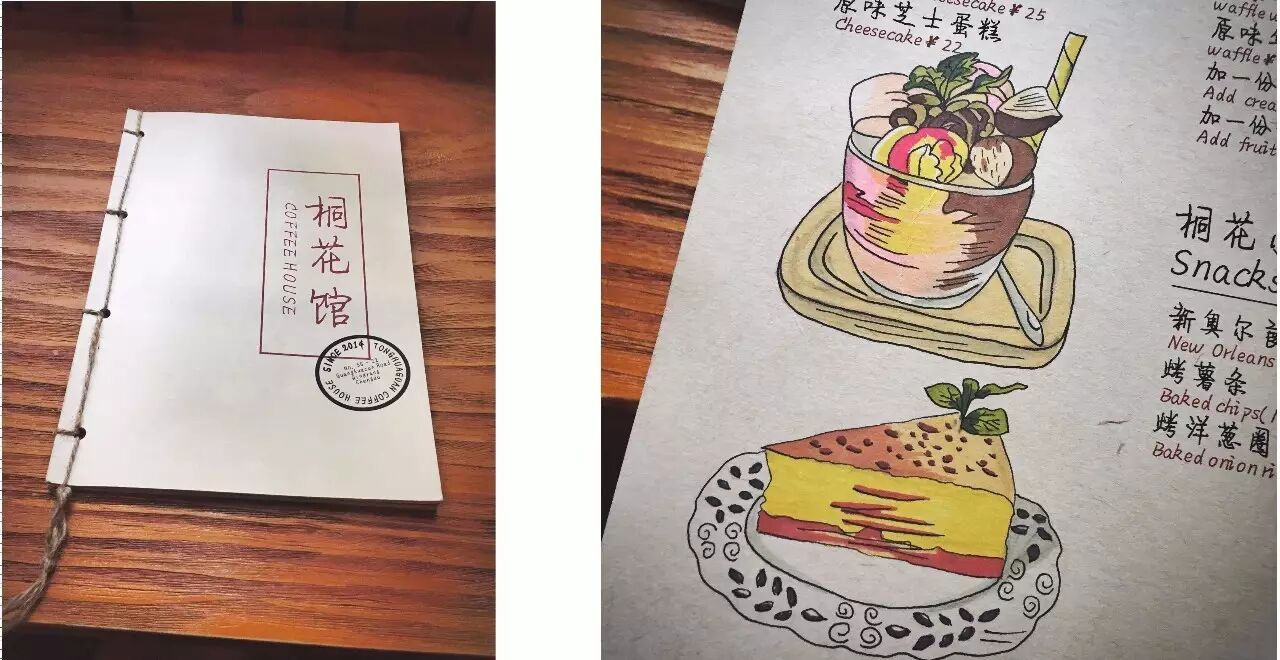 桐花馆
COFFEE HOUSE
SINCE 2014 TONGHUAGUAN COFFEE HOUSE
Chengdu
cheesecake ¥ 25
原味芝士蛋糕
Cheesecake ¥ 22
waffle
原味
waffle ¥
加一份
Add crea
加一份
Add fruit
桐花
Snacks
新奥尔
New Orleans
烤薯条
Baked chips(
烤洋葱圈
Baked onion ri